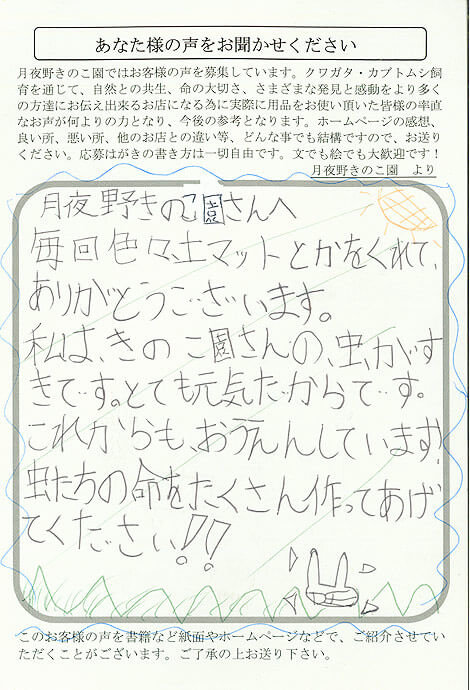 あなた様の声をお聞かせください
月夜野きのこ園ではお客様の声を募集しています。クワガタ・カブトムシ飼
育を通じて、自然との共生、命の大切さ、さまざまな発見と感動をより多く
の方達にお伝え出来るお店になる為に実際に用品をお使い頂いた皆様の率直
なお声が何よりの力となり、今後の参考となります。ホームページの感想、
良い所、悪い所、他のお店との違い等、どんな事でも結構ですので、お送り
ください。応募はがきの書き方は一切自由です。文でも絵でも大歓迎です！
月夜野きのこ園　より
月夜野きのこ園さんへ
毎回色々、土マットとかをくれて、
ありがとうございます。
私は、きのこ園さんの、虫がす
きです。とても元気だからです。
これからも、おうえんしています。
虫たちの命をたくさん作ってあげ
てください!!
このお客様の声を書籍など紙面やホームページなどで、ご紹介させてい
ただくことがございます。ご了承の上お送り下さい。